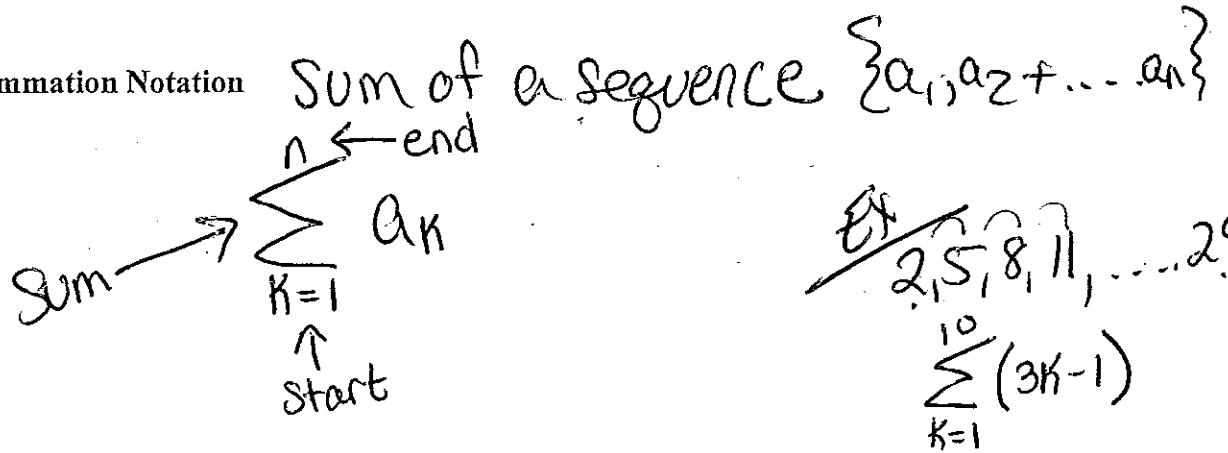 mmation Notation Sum of a sequence {a₁, a₂ + .... aₙ}
n ← end
Sum → ∑ aₖ
K=1
↑
Start
Ex
2, 5, 8, 11, .... 2
10
∑ (3K-1)
K=1